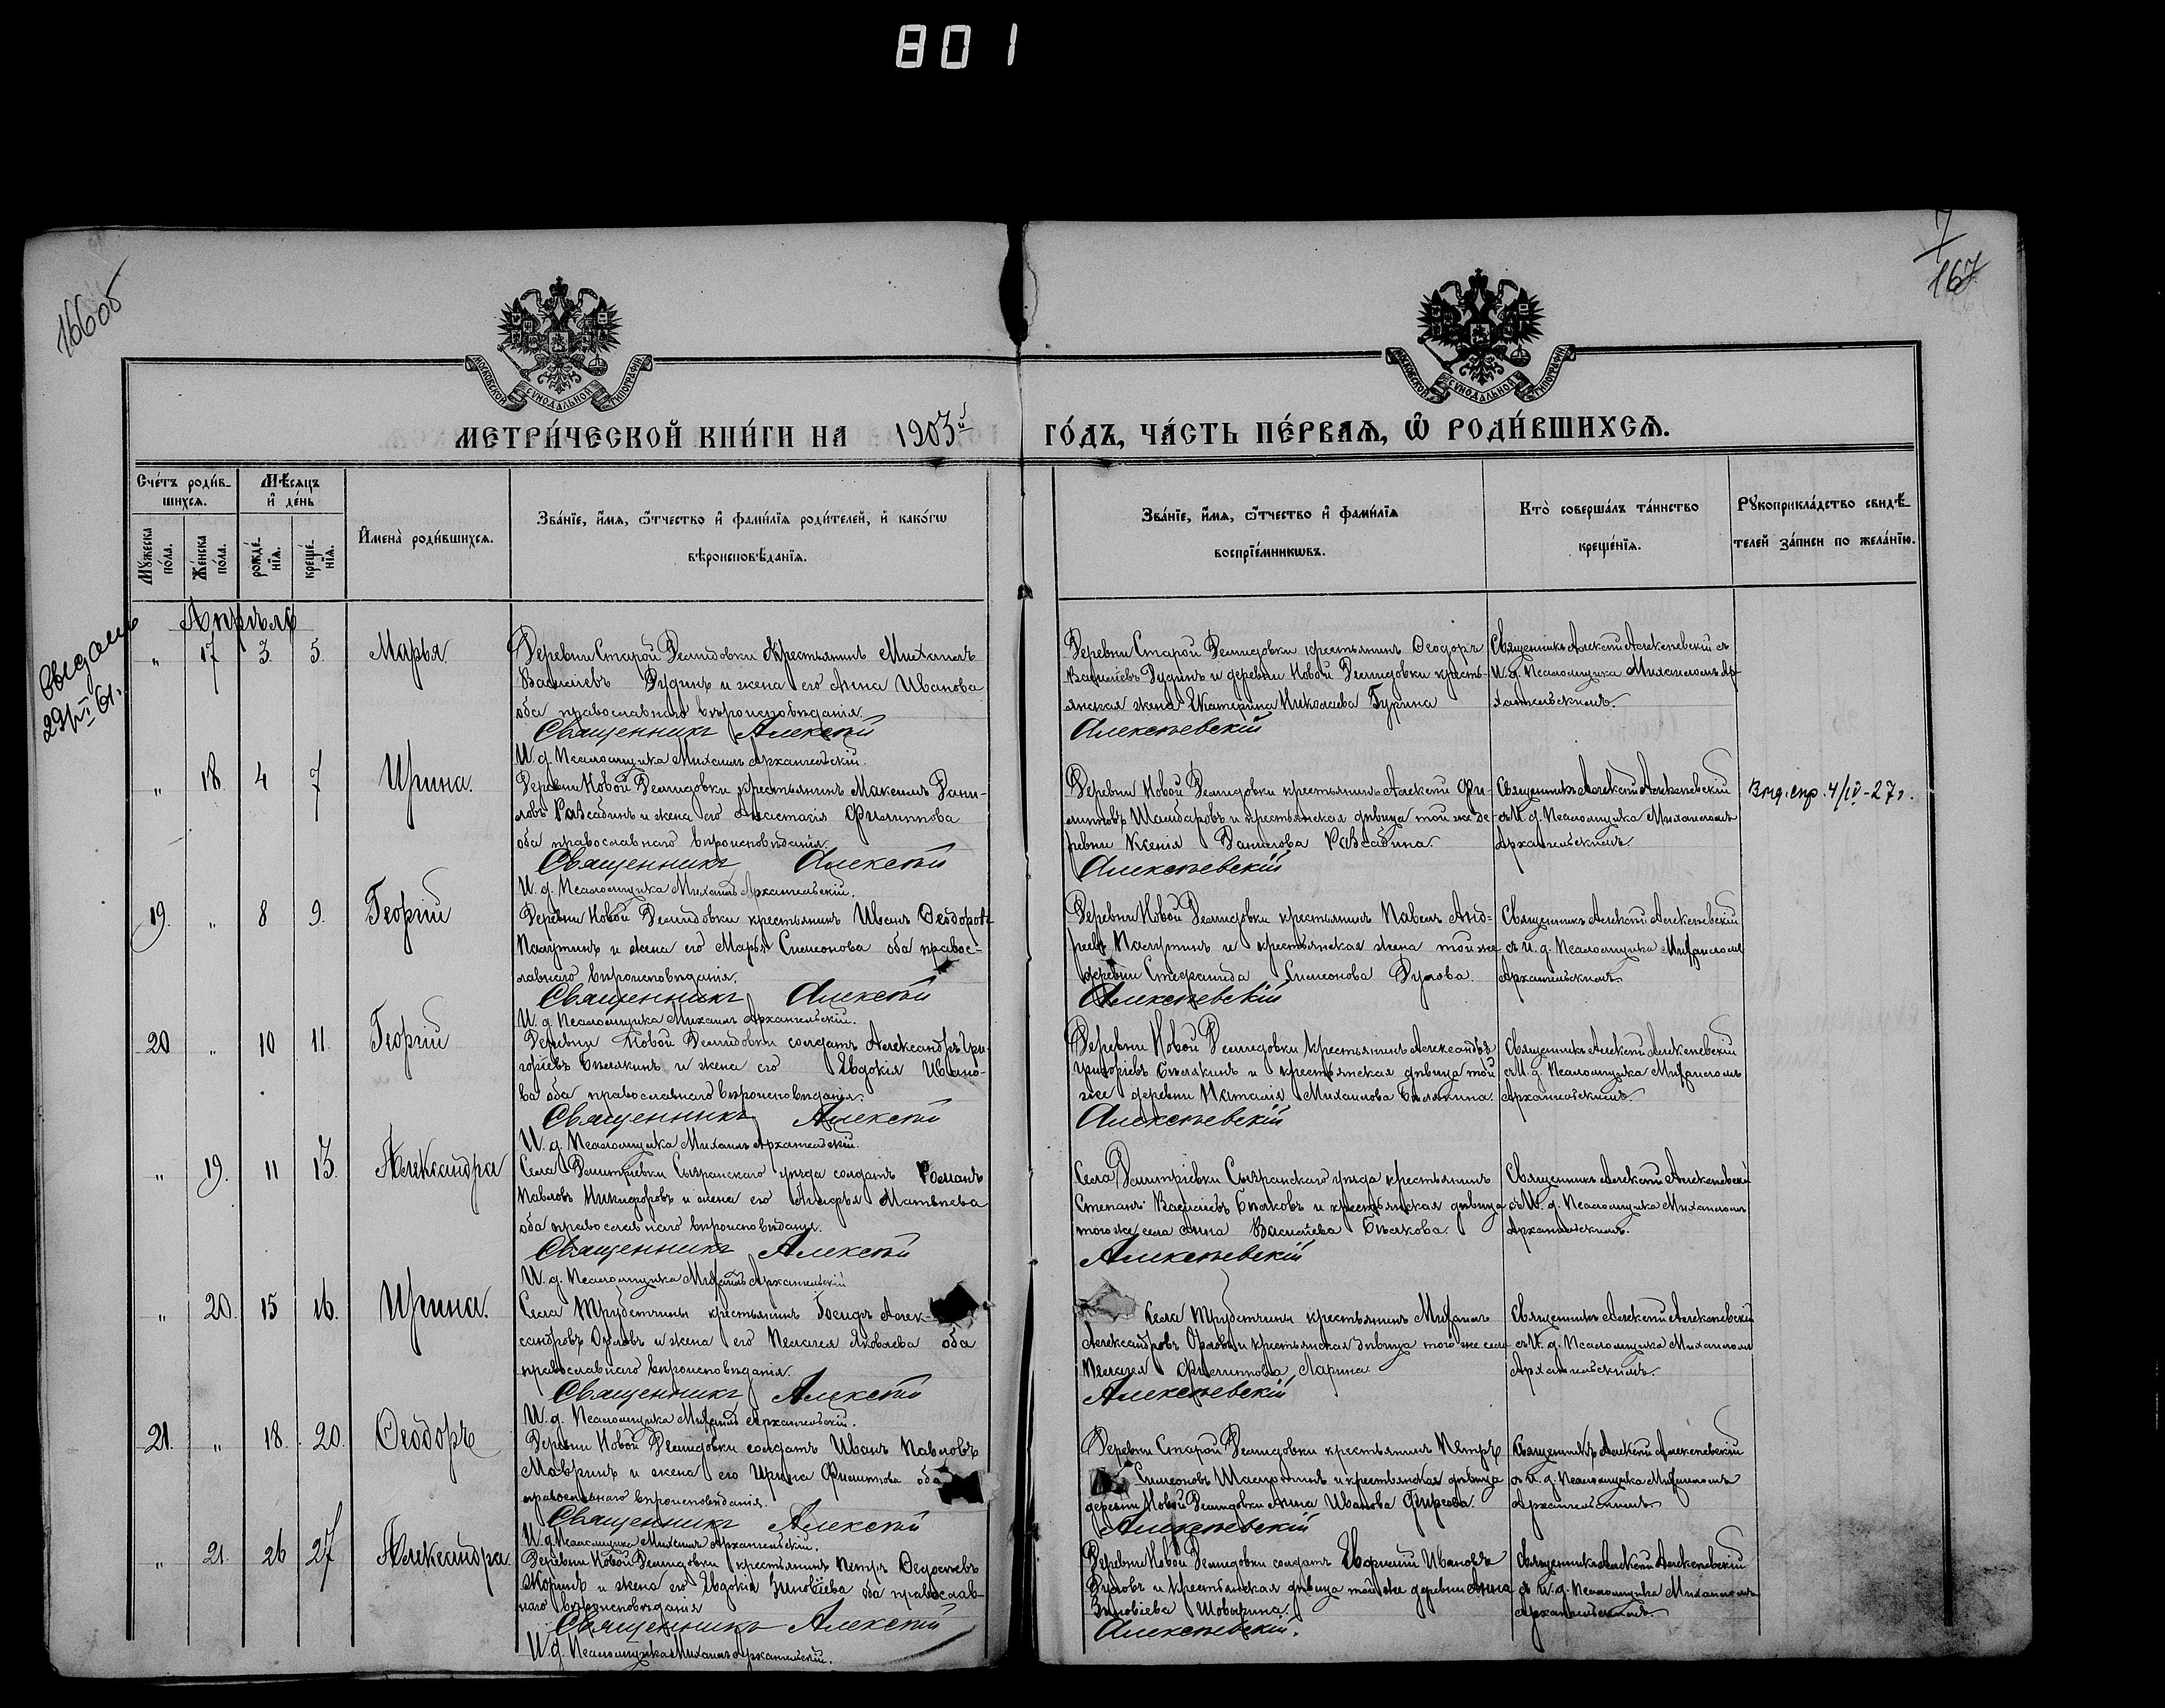 801
166об
7
167
МОСКОВСКОЙ СѴНОДАЛЬНОЙ ТИПОГРАФІИ
МОСКОВСКОЙ СѴНОДАЛЬНОЙ ТИПОГРАФІИ
МЕТРИ́ЧЕСКОЙ КНИ́ГИ НА 1903й ГО́ДЪ, ЧА́СТЬ ПЕ́РВАѦ, Ѽ РОДИ́ВШИХСѦ.
Сче́тъ роди́в-
шихсѧ.
Мꙋжеска по́ла.
Же́нска по́ла.
Мѣ́сѧцъ и҆ де́нь
рожде́-нїѧ.
креще́-нїѧ.
И҆мена̀ роди́вшихсѧ.
Зва́нїе, и҆́мѧ, ѻ҆́тчество и҆ фами́лїѧ роди́телей, и҆ како́гѡ
вѣроисповѣ́данїѧ.
Зва́нїе, и҆́мѧ, ѻ҆́тчество и҆ фами́лїѧ
воспрїе́мникѡвъ.
Кто̀ соверша́лъ та́инство
креще́нїѧ.
Рꙋкоприкла́дство свидѣ́-
телей за́писи по жела́нїю.
Апрѣль
29/VI 61г.
" 17 3. 5. Марья.
Деревни Старой Демидовки крестьянинъ Михаилъ
Васильевъ Дудинъ и жена его Анна Иванова
оба православнаго вѣроисповѣданія.
Священникъ Алексѣй
И. д. Псаломщика Михаилъ Архангельскій.
Деревни Старой Демидовки крестьянинъ Ѳеодоръ
Васильевъ Дудинъ и деревни Новой Демидовки кресть-
янская жена Екатерина Николаева Гурина
Алексѣевскій
Священникъ Алексѣй Алексѣевскій съ
И. д. Псаломщика Михаиломъ Ар-
хангельскимъ.
" 18. 4 7 Ирина.
Деревни Новой Демидовки крестьянинъ Максимъ Дани-
ловъ и жена его Анастасія Филиппова
оба православнаго вѣроисповѣданія.
Священникъ Алексѣй
И. д. Псаломщика Михаилъ Архангельскій.
Деревни Новой Демидовки крестьянинъ Алексѣй Фи-
липповъ Шандаровъ и крестьянская дѣвица той же де-
ревни Ксенія Данилова
Алексѣевскій
Священникъ Алексѣй Алексѣевскій
съ И. д. Псаломщика Михаиломъ
Архангельскимъ.
Выд. спр. 4/IV-27г.
19. " 8 9. Георгій
Деревни Новой Демидовки крестьянинъ Иванъ Ѳеодоровъ
и жена его Марья Симеонова оба правос-
лавнаго вѣроисповѣданія.
Священникъ Алексѣй
И. д. Псаломщика Михаилъ Архангельскій.
Деревни Новой Демидовки крестьянинъ Павелъ Анд-
реевъ и крестьянская жена той же
деревни Стефанида Симеонова
Алексѣевскій
Священникъ Алексѣй Алексѣевскій
съ И. д. Псаломщика Михаиломъ
Архангельскимъ.
20 " 10 11. Георгій
Деревни Новой Демидовки солдатъ Александръ Гри-
горіевъ Бѣлякинъ и жена его Евдокія Ивано-
ва оба православнаго вѣроисповѣданія.
Священникъ Алексѣй
И. д. Псаломщика Михаилъ Архангельскій.
Деревни Новой Демидовки крестьянинъ Александръ
Григоріевъ Бѣлякинъ и крестьянская дѣвица той
же деревни Наталія Михаилова Бѣлякина.
Алексѣевскій
Священникъ Алексѣй Алексѣевскій
съ И. д. Псаломщика Михаиломъ
Архангельскимъ.
" 19. 11 13. Александра
Села Дмитріевки Сызранскаго уѣзда солдатъ Романъ
Павловъ Никифоровъ и жена его Матвѣева
оба православнаго вѣроисповѣданія.
Священникъ Алексѣй
И. д. Псаломщика Михаилъ Архангельскій
Села Дмитріевки Сызранскаго уѣзда крестьянинъ
Степанъ Васильевъ и крестьянская дѣвица
того же села Анна Васильева
Алексѣевскій
Священникъ Алексѣй Алексѣевскій
съ И. д. Псаломщика Михаиломъ
Архангельскимъ.
" 20. 15 16. Ирина.
Села Трубетчины крестьянинъ Іосифъ Алек-
сандровъ Орловъ и жена его Пелагея Яковлева оба
православнаго вѣроисповѣданія.
Священникъ Алексѣй
И. д. Псаломщика Михаилъ Архангельскій.
Села Трубетчины крестьянинъ Михаилъ
Александровъ Орловъ и крестьянская дѣвица того же села
Пелагея Филиппова Ларина
Алексѣевскій
Священникъ Алексѣй Алексѣевскій
съ И. д. Псаломщика Михаиломъ
Архангельскимъ.
21. " 18. 20. Ѳеодоръ
Деревни Новой Демидовки солдатъ Иванъ Павловъ
Мавринъ и жена его Ирина Филиппова оба
православнаго вѣроисповѣданія.
Священникъ Алексѣй
И. д. Псаломщика Михаилъ Архангельскій.
Деревни Старой Демидовки крестьянинъ Петръ
Симеоновъ и крестьянская дѣвица
деревни Новой Демидовки Анна Иванова Фирсова.
Алексѣевскій
Священникъ Алексѣй Алексѣевскій
съ И. д. Псаломщика Михаиломъ
Архангельскимъ.
" 21. 26 27 Александра.
Деревни Новой Демидовки крестьянинъ Петръ Ѳедосѣевъ
и жена его Евдокія Зиновіева оба православ-
наго вѣроисповѣданія
Священникъ Алексѣй
И. д. Псаломщика Михаилъ Архангельскій.
Деревни Новой Демидовки солдатъ Евфимій Ивановъ
и крестьянская дѣвица той же деревни Анна
Зиновіева
Алексѣевскій.
Священникъ Алексѣй Алексѣевскій
съ И. д. Псаломщика Михаиломъ
Архангельскимъ.